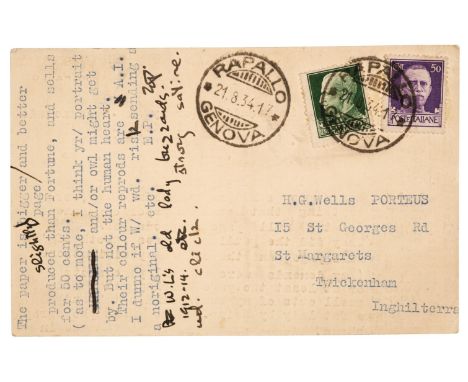 The paper is bigger and better
slightly page/
produced than Fortune, and sells
for 50 cents.
( as to mode, I think yr/ portrait
and/or owl might get
by. But not the human heart.
Their colour reprods are A.I.
I dunno if W/ wd. risk sending a
noriginal, etc. E.P.
W.L's old lady buzzards.
1912-14. etc. strong satire.
wd. click.
RAPALLO
21.8.34.-17
GENOVA
50
POSTE ITALIANE
RAPALLO
GENOVA
H.G.Wells PORTEUS
15 St Georges Rd
St Margarets
Twickenham
Inghilterra